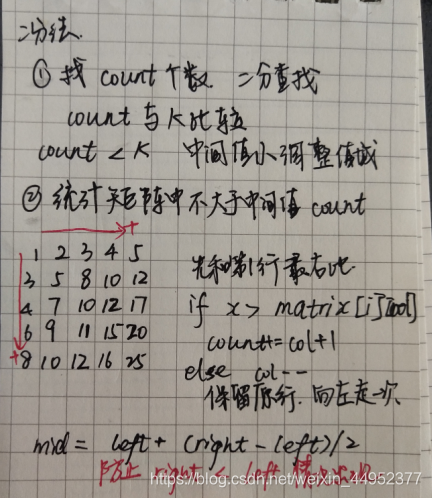 二分法.
① 找 count 个数 二分查找
count 与 K 比较
count < K 中间值小 调整值域
② 统计矩阵中不大于中间值 count
1 2 3 4 5
3 5 8 10 12
4 7 10 12 17
6 9 11 15 20
8 10 12 16 25
+
+
先和第1行最右比
if x > matrix[i][col]
count+= col+1
else col--
保留原行. 向左走一次
mid = left + (right - left)/2
防止 right < left
https://blog.csdn.net/weixin_44952377